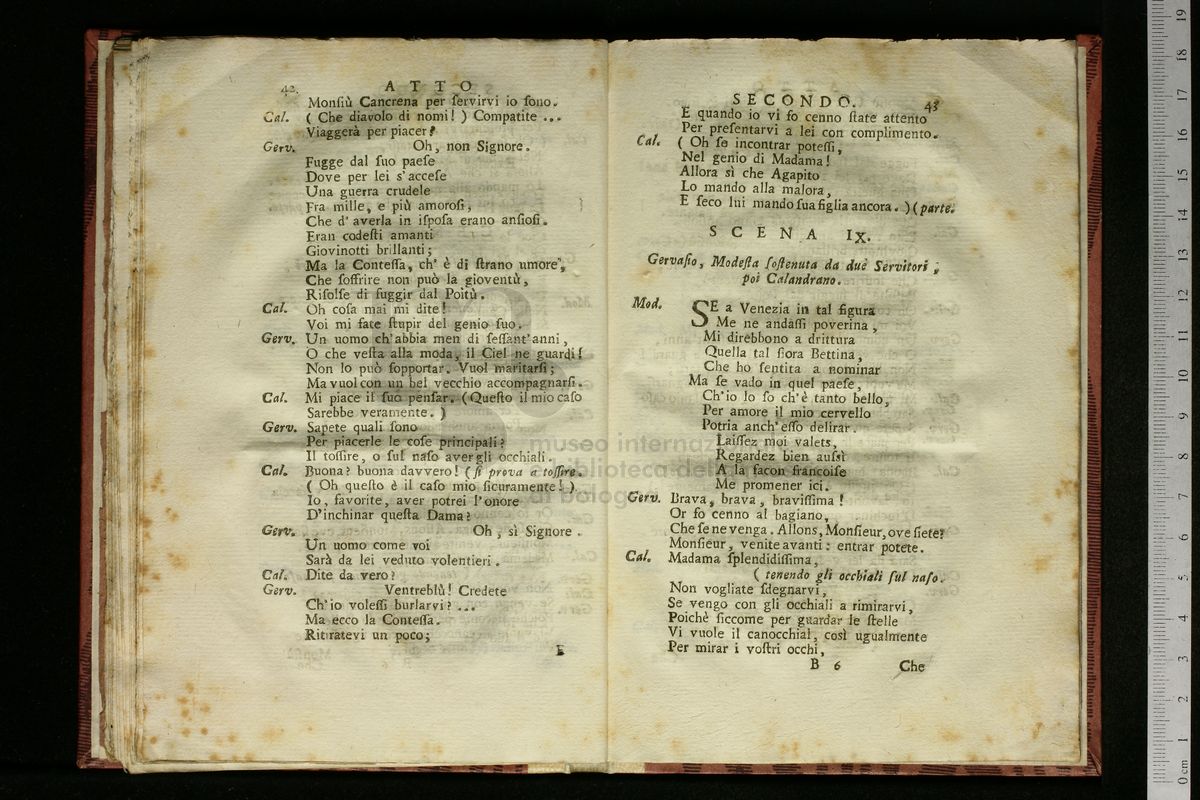 42 ATTO
Monſiù Cancrena per ſervirvi io ſono.
Cal. ( Che diavolo di nomi! ) Compatite ...
Viaggerà per piacer?
Gerv. Oh, non Signore.
Fugge dal ſuo paeſe
Dove per lei s'acceſe
Una guerra crudele
Fra mille, e più amoroſi,
Che d'averla in iſpoſa erano anſioſi.
Eran codeſti amanti
Giovinotti brillanti;
Ma la Conteſſa, ch' è di ſtrano umore,
Che ſoffrire non può la gioventù,
Riſolſe di fuggir dal Poitù.
Cal. Oh coſa mai mi dite!
Voi mi fate ſtupir del genio ſuo.
Gerv. Un uomo ch'abbia men di ſeſſant'anni,
O che veſta alla moda, il Ciel ne guardi!
Non lo può ſopportar. Vuol maritarſi;
Ma vuol con un bel vecchio accompagnarſi.
Cal. Mi piace il ſuo penſar. (Queſto il mio caſo
Sarebbe veramente. )
Gerv. Sapete quali ſono
Per piacerle le coſe principali?
Il toſſire, o ſul naſo aver gli occhiali.
Cal. Buona? buona davvero! (ſi prova a toſſire.
( Oh queſto è il caſo mio ſicuramente! )
Io, favorite, aver potrei l'onore
D'inchinar queſta Dama?
Gerv. Oh, sì Signore.
Un uomo come voi
Sarà da lei veduto volentieri.
Cal. Dite da vero?
Gerv. Ventreblù! Credete
Ch'io voleſſi burlarvi? ...
Ma ecco la Conteſſa.
Ritiratevi un poco;
E
SECONDO. 43
E quando io vi fo cenno ſtate attento
Per preſentarvi a lei con complimento.
Cal. ( Oh ſe incontrar poteſſi,
Nel genio di Madama!
Allora sì che Agapito
Lo mando alla malora,
E ſeco lui mando ſua figlia ancora. ) (parte.
SCENA IX.
Gervaſio, Modeſta ſoſtenuta da due Servitori,
poi Calandrano.
Mod. SE a Venezia in tal figura
Me ne andaſſi poverina,
Mi direbbono a drittura
Quella tal ſiora Bettina,
Che ho ſentita a nominar
Ma ſe vado in quel paeſe,
Ch'io lo ſo ch'è tanto bello,
Per amore il mio cervello
Potria anch'eſſo delirar.
Laiſſez moi valets,
Regardez bien auſsì
A la facon francoiſe
Me promener ici.
Gerv. Brava, brava, braviſſima!
Or fo cenno al bagiano,
Che ſe ne venga. Allons, Monſieur, ove ſiete?
Monſieur, venite avanti: entrar potete.
Cal. Madama ſplendidiſſima,
( tenendo gli occhiali ſul naſo.
Non vogliate ſdegnarvi,
Se vengo con gli occhiali a rimirarvi,
Poichè ſiccome per guardar le ſtelle
Vi vuole il canocchial, così ugualmente
Per mirar i voſtri occhi,
B 6 Che